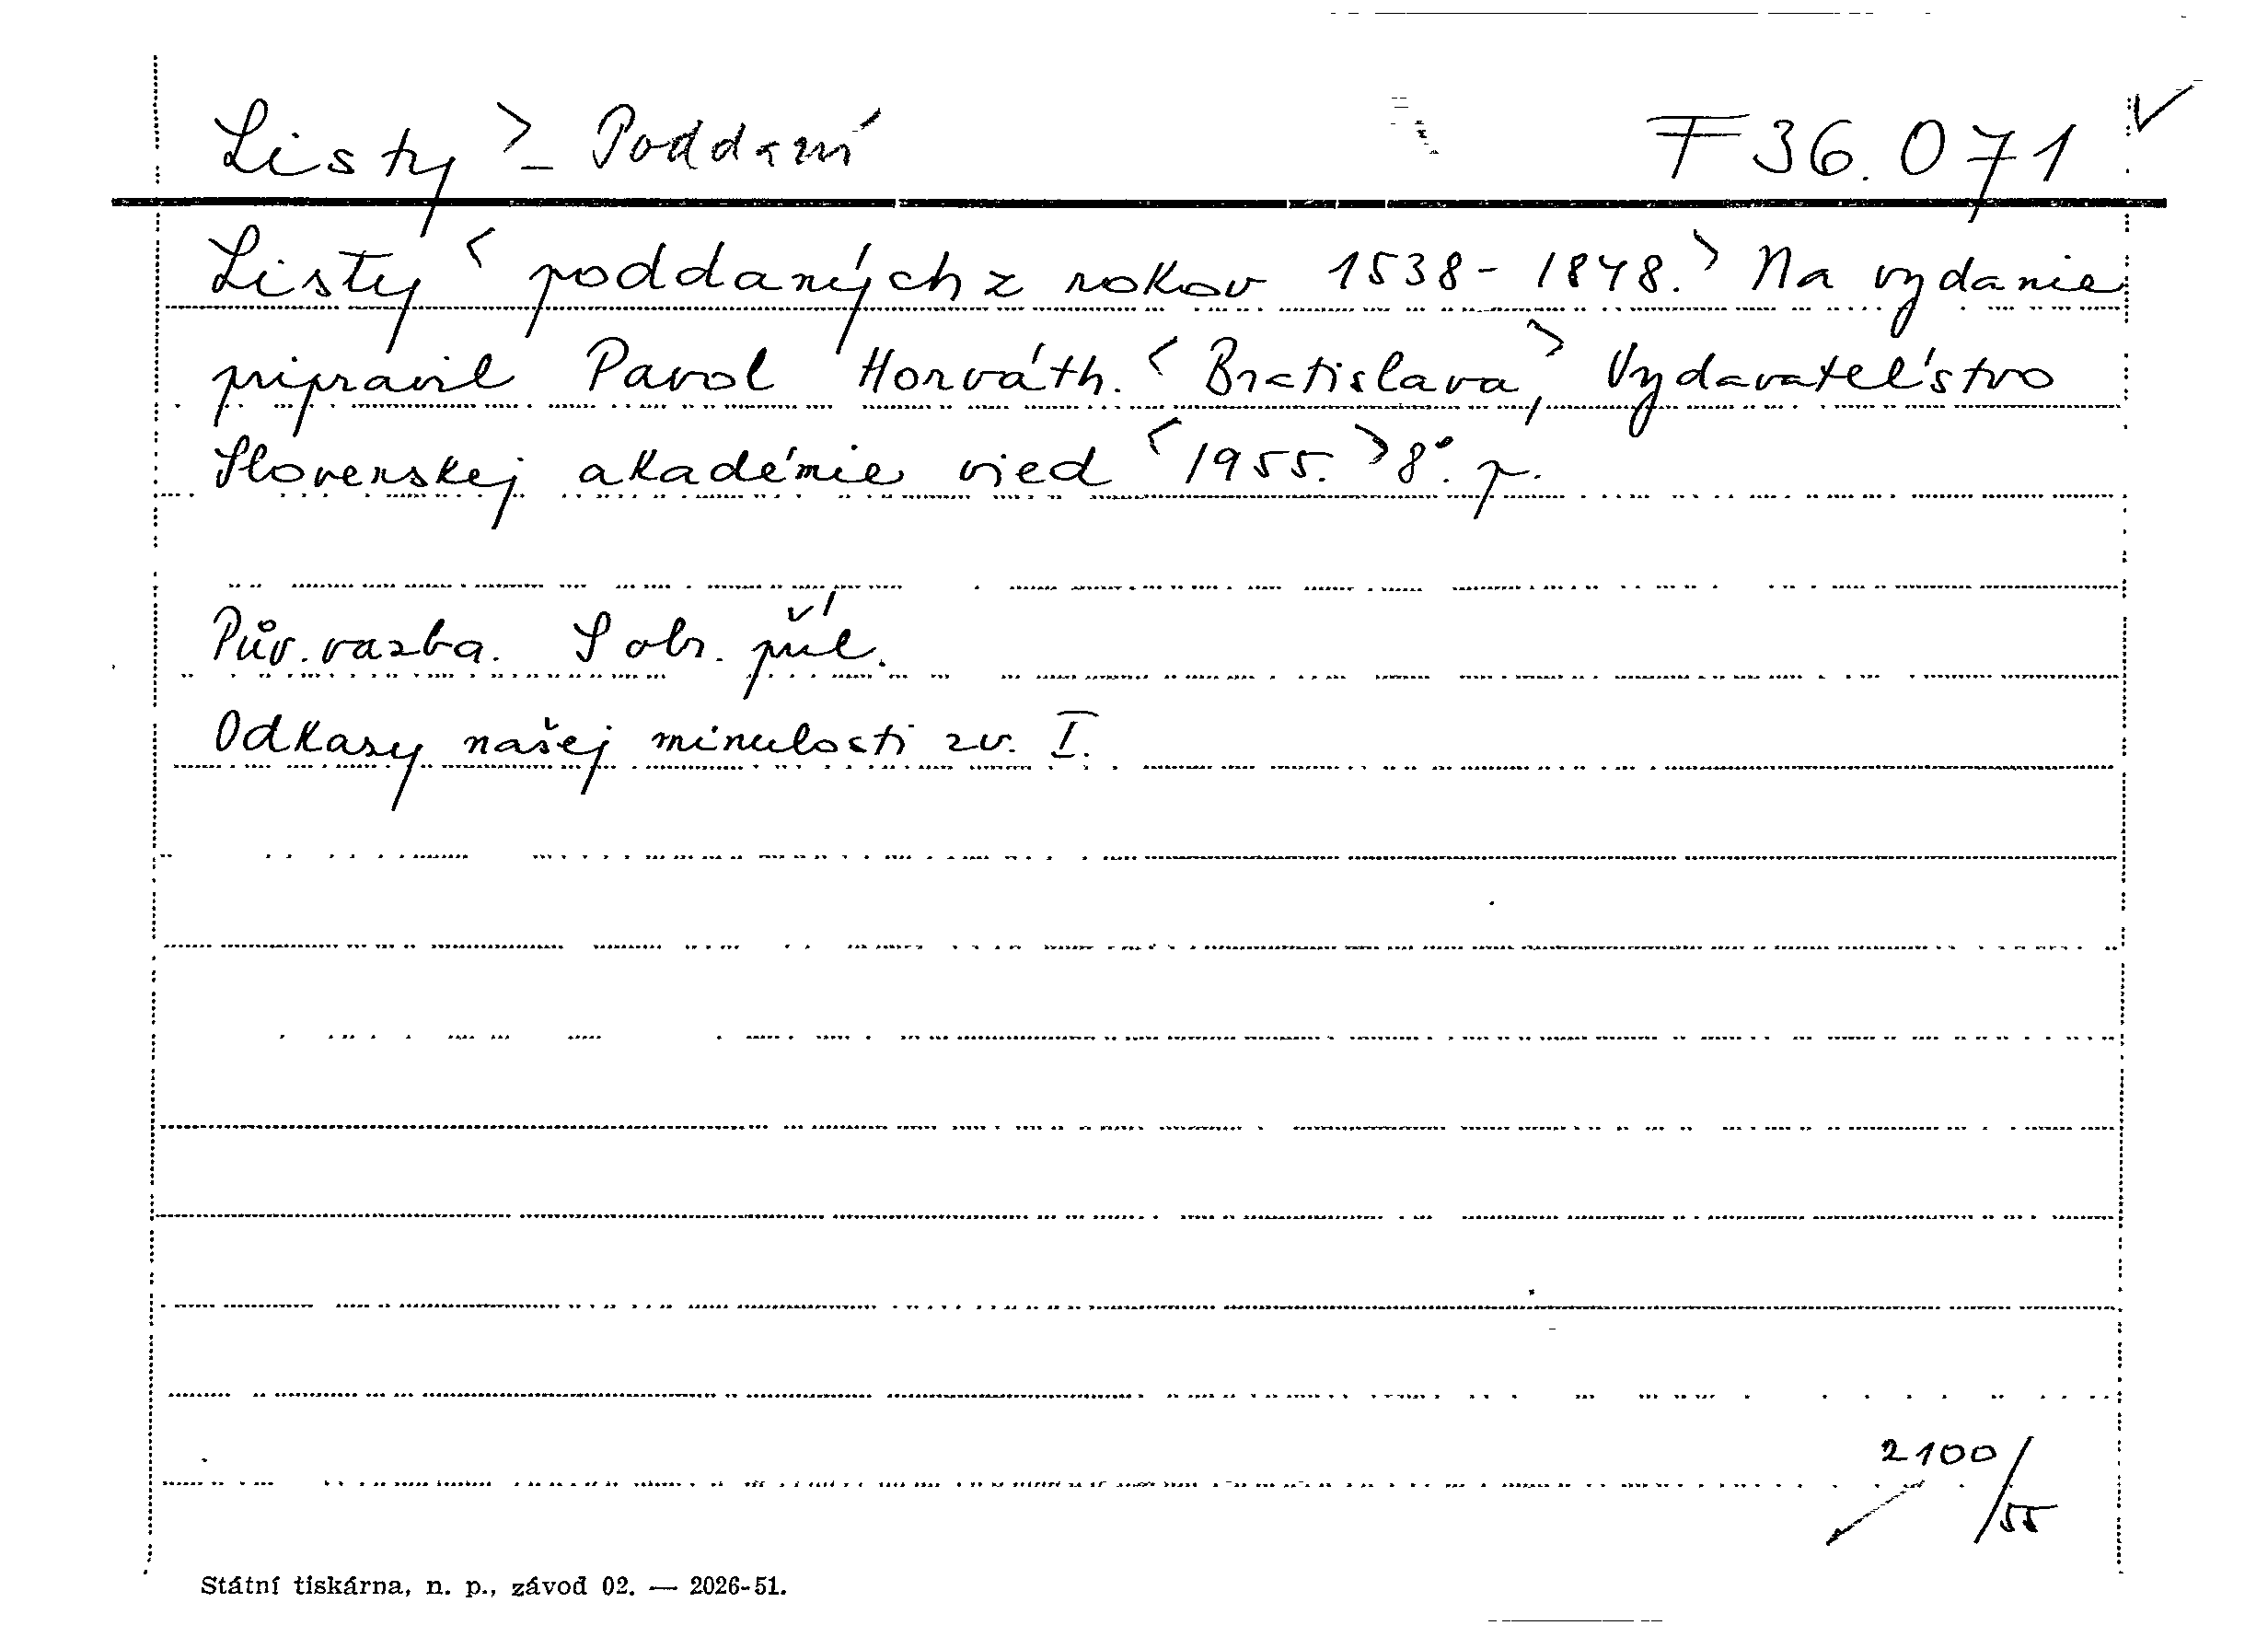 Listy > - Poddaní F 36.071 ✓
Listy < poddaných z rokov 1538 - 1848. > Na vydanie
pripravil Pavol Horváth. < Bratislava, > Vydavateľstvo
Slovenskej akadémie vied < 1955. > 8°. p.
Pův. vazba. S obr. příl.
Odkazy našej minulosti zv. I.
2100/55
Státní tiskárna, n. p., závod 02. — 2026-51.